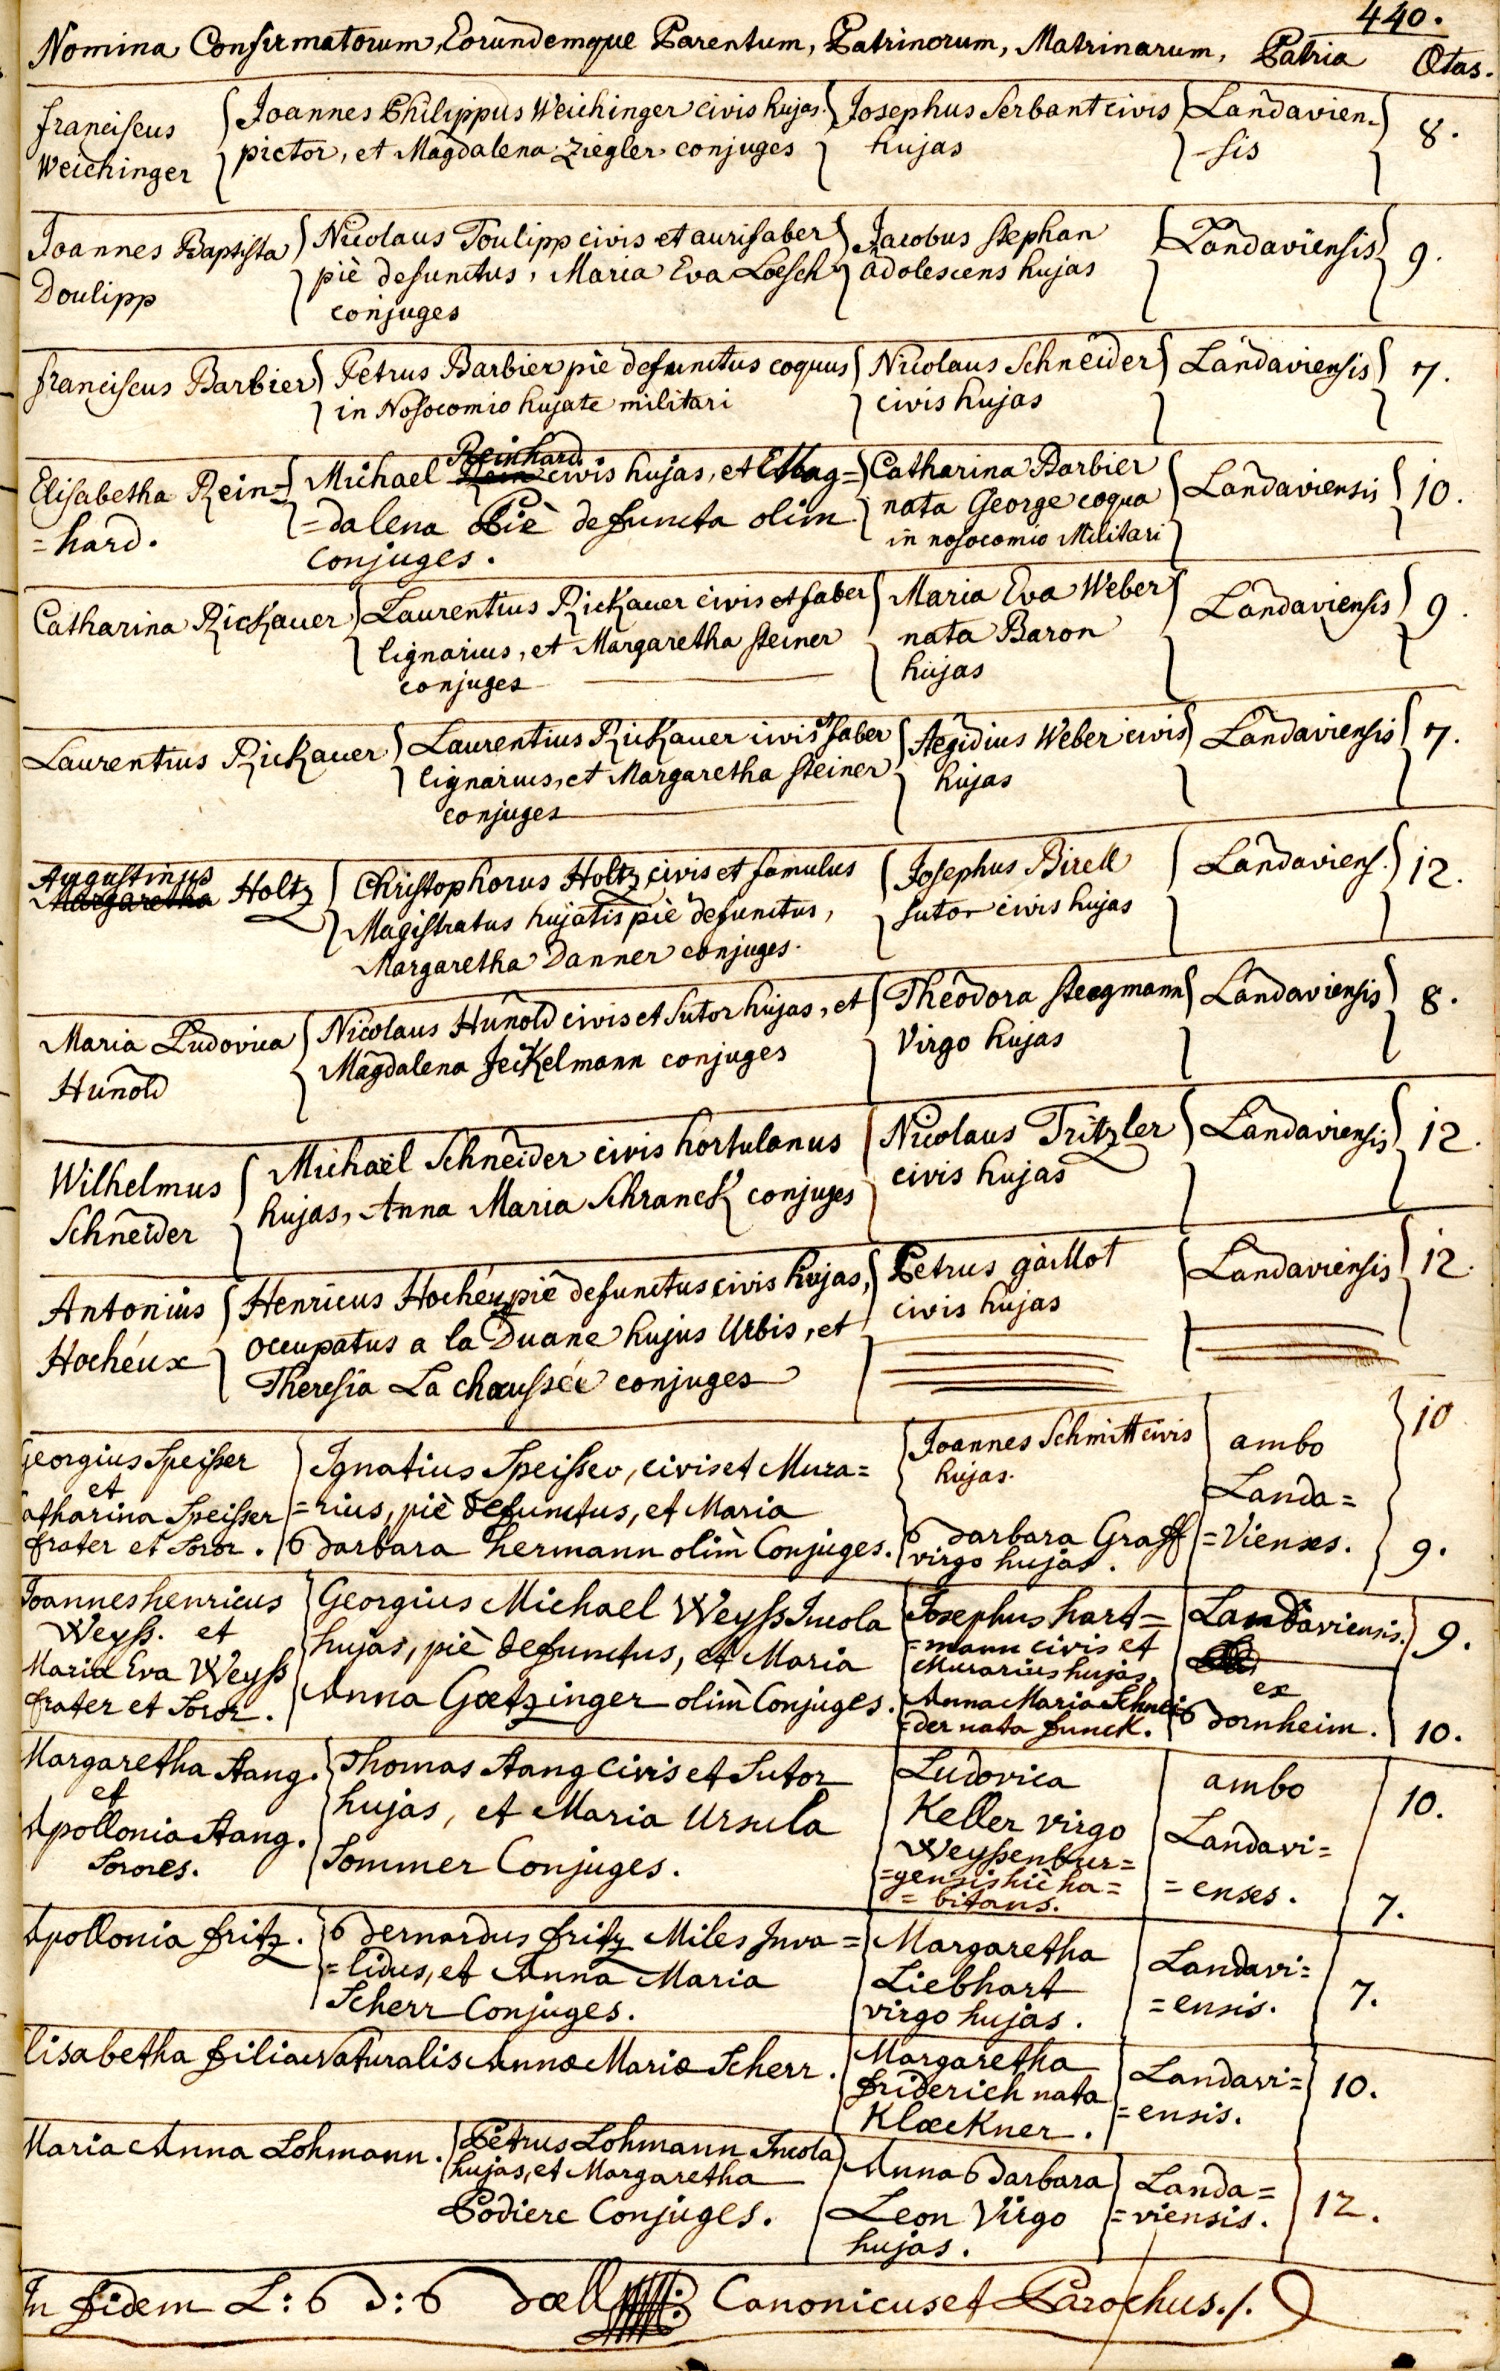 440.
Nomina Confirmatorum, Eorundemque Parentum, Patrinorum, Matrinarum, Patria Ætas.
Franciscus
Weichinger
Joannes Philippus Weichinger civis hujas
pictor, et Magdalena Ziegler conjuges
Josephus Serbant civis
hujas
Landavien-
-sis
8.
Joannes Baptista
Doulipp
Nicolaus Toulipp civis et aurifaber
piè defunctus, Maria Eva Loesch
conjuges
Jacobus Stephan
adolescens hujas
Landaviensis
9.
Franciscus Barbier
Petrus Barbier piè defunctus coquus
in Nosocomio hujate militari
Nicolaus Schneider
civis hujas
Landaviensis
7.
Elisabetha Rein=
=hard.
Michael Reinhard civis hujas, et Mag=
=dalena Piè defuncta olim
conjuges.
Catharina Barbier
nata George coqua
in nosocomio Militari
Landaviensis
10.
Catharina Rickauer
Laurentius Rickauer civis et faber
lignarius, et Margaretha Steiner
conjuges
Maria Eva Weber
nata Baron
hujas
Landaviensis
9.
Laurentius Rickauer
Laurentius Rickauer civis et faber
lignarius, et Margaretha Steiner
conjuges
Aegidius Weber civis
hujas
Landaviensis
7.
Augustinus
Margaretha Holtz
Christophorus Holtz civis et famulus
Magistratus hujatis piè defunctus,
Margaretha Danner conjuges.
Josephus Birell
sutor civis hujas
Landaviens.
12.
Maria Ludovica
Hunold
Nicolaus Hunold civis et sutor hujas, et
Magdalena Jeckelmann conjuges
Theodora Steegmann
Virgo hujas
Landaviensis
8.
Wilhelmus
Schneider
Michaël Schneider civis hortulanus
hujas, Anna Maria Schranck conjuges
Nicolaus Tritzler
civis hujas
Landaviensis
12.
Antonius
Hochéux
Henricus Hochéux piè defunctus civis hujas,
occupatus a la Duane hujus Urbis, et
Theresia La chaussée conjuges
Petrus gaillot
civis hujas
Landaviensis
12.
Georgius Speisser
et
Catharina Speisser
frater et Soror.
Ignatius Speisser, civis et Mura=
=rius, piè defunctus, et Maria
Barbara hermann olim Conjuges.
Joannes Schmitt civis
hujas.
Barbara Graff
virgo hujas.
ambo
Landa=
=vienses.
10
9.
Joannes henricus
Weyss. et
Maria Eva Weyss
frater et Soror.
Georgius Michael Weyss Incola
hujas, piè defunctus, et Maria
Anna Gœtzinger olim Conjuges.
Josephus hart=
=mann civis et
Murarius hujas.
Anna Maria Schnei=
=der nata funck.
Landaviensis.
ex
Bornheim.
9.
10.
Margaretha Stang.
et
Apollonia Stang.
Sorores.
Thomas Stang Civis et Sutor
hujas, et Maria Ursula
Sommer Conjuges.
Ludovica
Keller virgo
Weyssenbur=
=gensis hic ha=
=bitans.
ambo
Landavi=
=enses.
10.
7.
Apollonia fritz.
Bernardus fritz Miles Inva=
=lidus, et Anna Maria
Scherr Conjuges.
Margaretha
Liebhart
virgo hujas.
Landavi=
=ensis.
7.
Elisabetha filia Naturalis Annæ Mariæ Scherr.
Margaretha
friderich nata
Klœckner.
Landavi=
=ensis.
10.
Maria Anna Lohmann.
Petrus Lohmann Incola
hujas, et Margaretha
Podiere Conjuges.
Anna Barbara
Leon Virgo
hujas.
Landa=
=viensis.
12.
In fidem L: B: Bœll Canonicus et Parochus./.